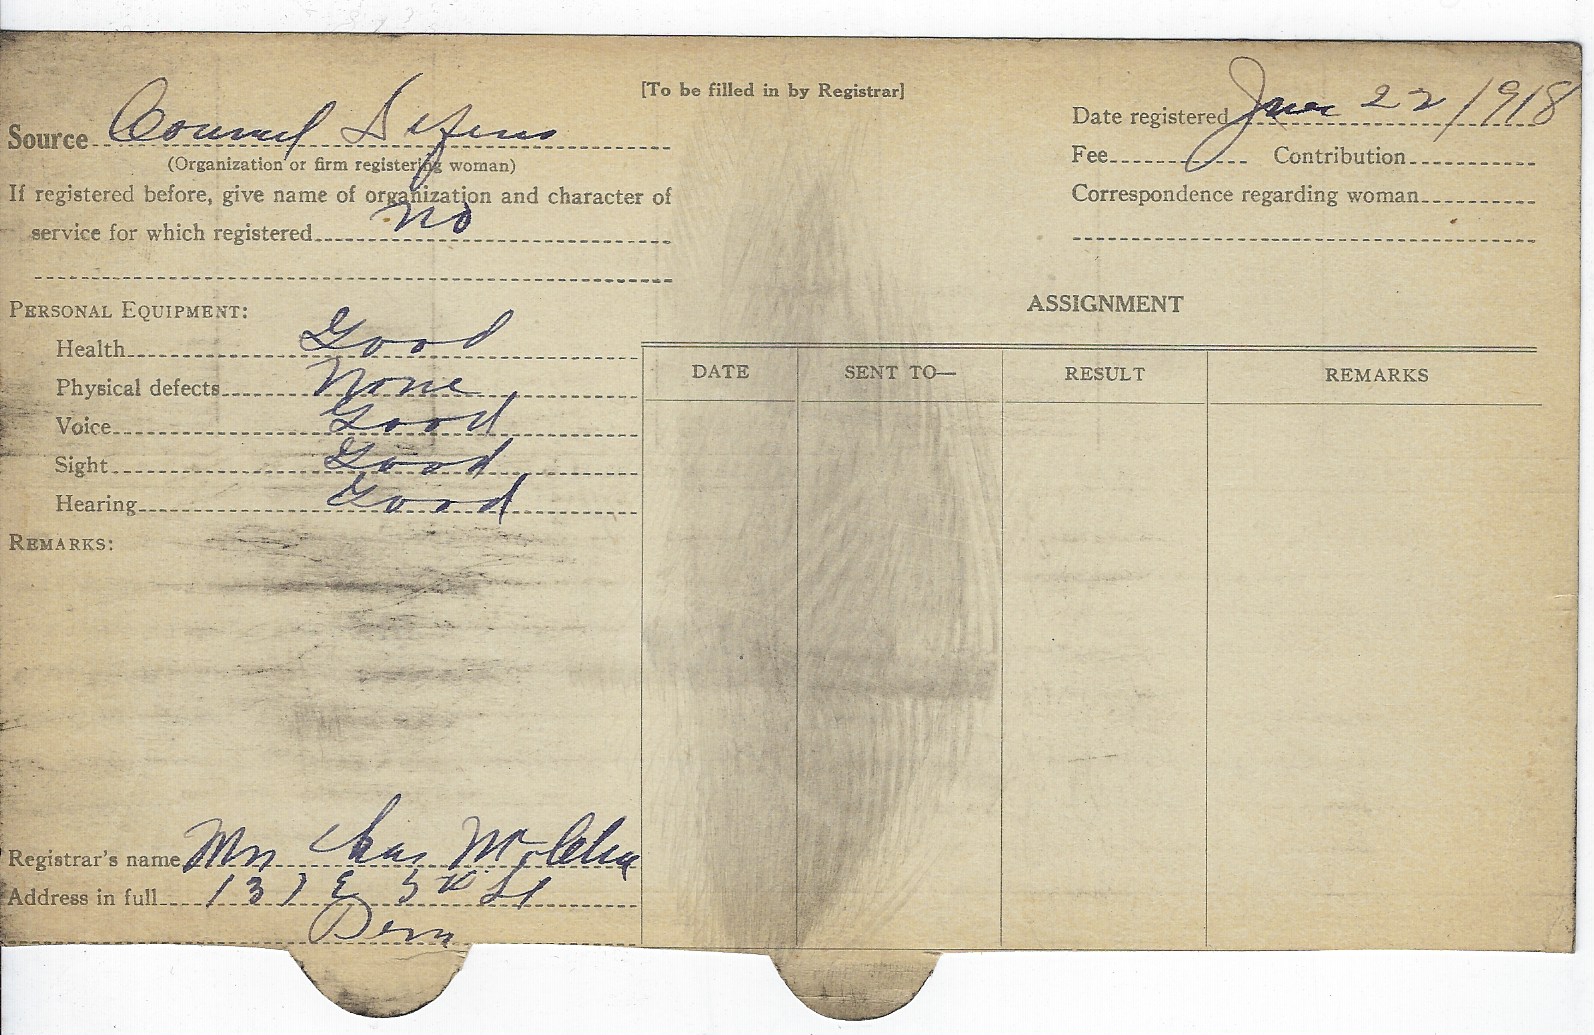 [To be filled in by Registrar]
Source Council Defens
(Organization or firm registering woman)
If registered before, give name of organization and character of
service for which registered no
Date registered June 22 1918
Fee Contribution
Correspondence regarding woman
PERSONAL EQUIPMENT:
Health Good
Physical defects None
Voice Good
Sight Good
Hearing Good
REMARKS:
ASSIGNMENT
DATE SENT TO— RESULT REMARKS
Registrar's name Mrs Chas
Address in full 137 E 5th St